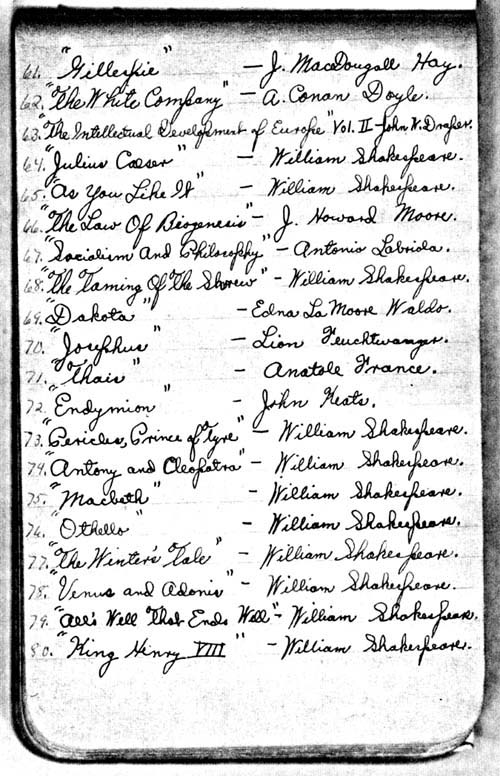 61. "Gillespie" — J. MacDougall Hay.
62. "The White Company" — A. Conan Doyle.
63. "The Intellectual Development of Europe" Vol. II - John W. Draper.
64. "Julius Caesar" — William Shakespeare.
65. "As You Like It" — William Shakespeare.
66. "The Law Of Biogenesis" - J. Howard Moore.
67. "Socialism And Philosophy" - Antonio Labriola.
68. "The Taming Of The Shrew" - William Shakespeare.
69. "Dakota" - Edna La Moore Waldo.
70. "Josephus" - Lion Feuchtwanger.
71. "Thais" - Anatole France.
72. "Endymion" - John Keats.
73. "Pericles, Prince of Tyre" - William Shakespeare.
74. "Antony and Cleopatra" - William Shakespeare.
75. "Macbeth" - William Shakespeare.
76. "Othello" - William Shakespeare.
77. "The Winter's Tale" - William Shakespeare.
78. "Venus and Adonis" - William Shakespeare.
79. "All's Well That Ends Well" - William Shakespeare.
80. "King Henry VIII" - William Shakespeare.